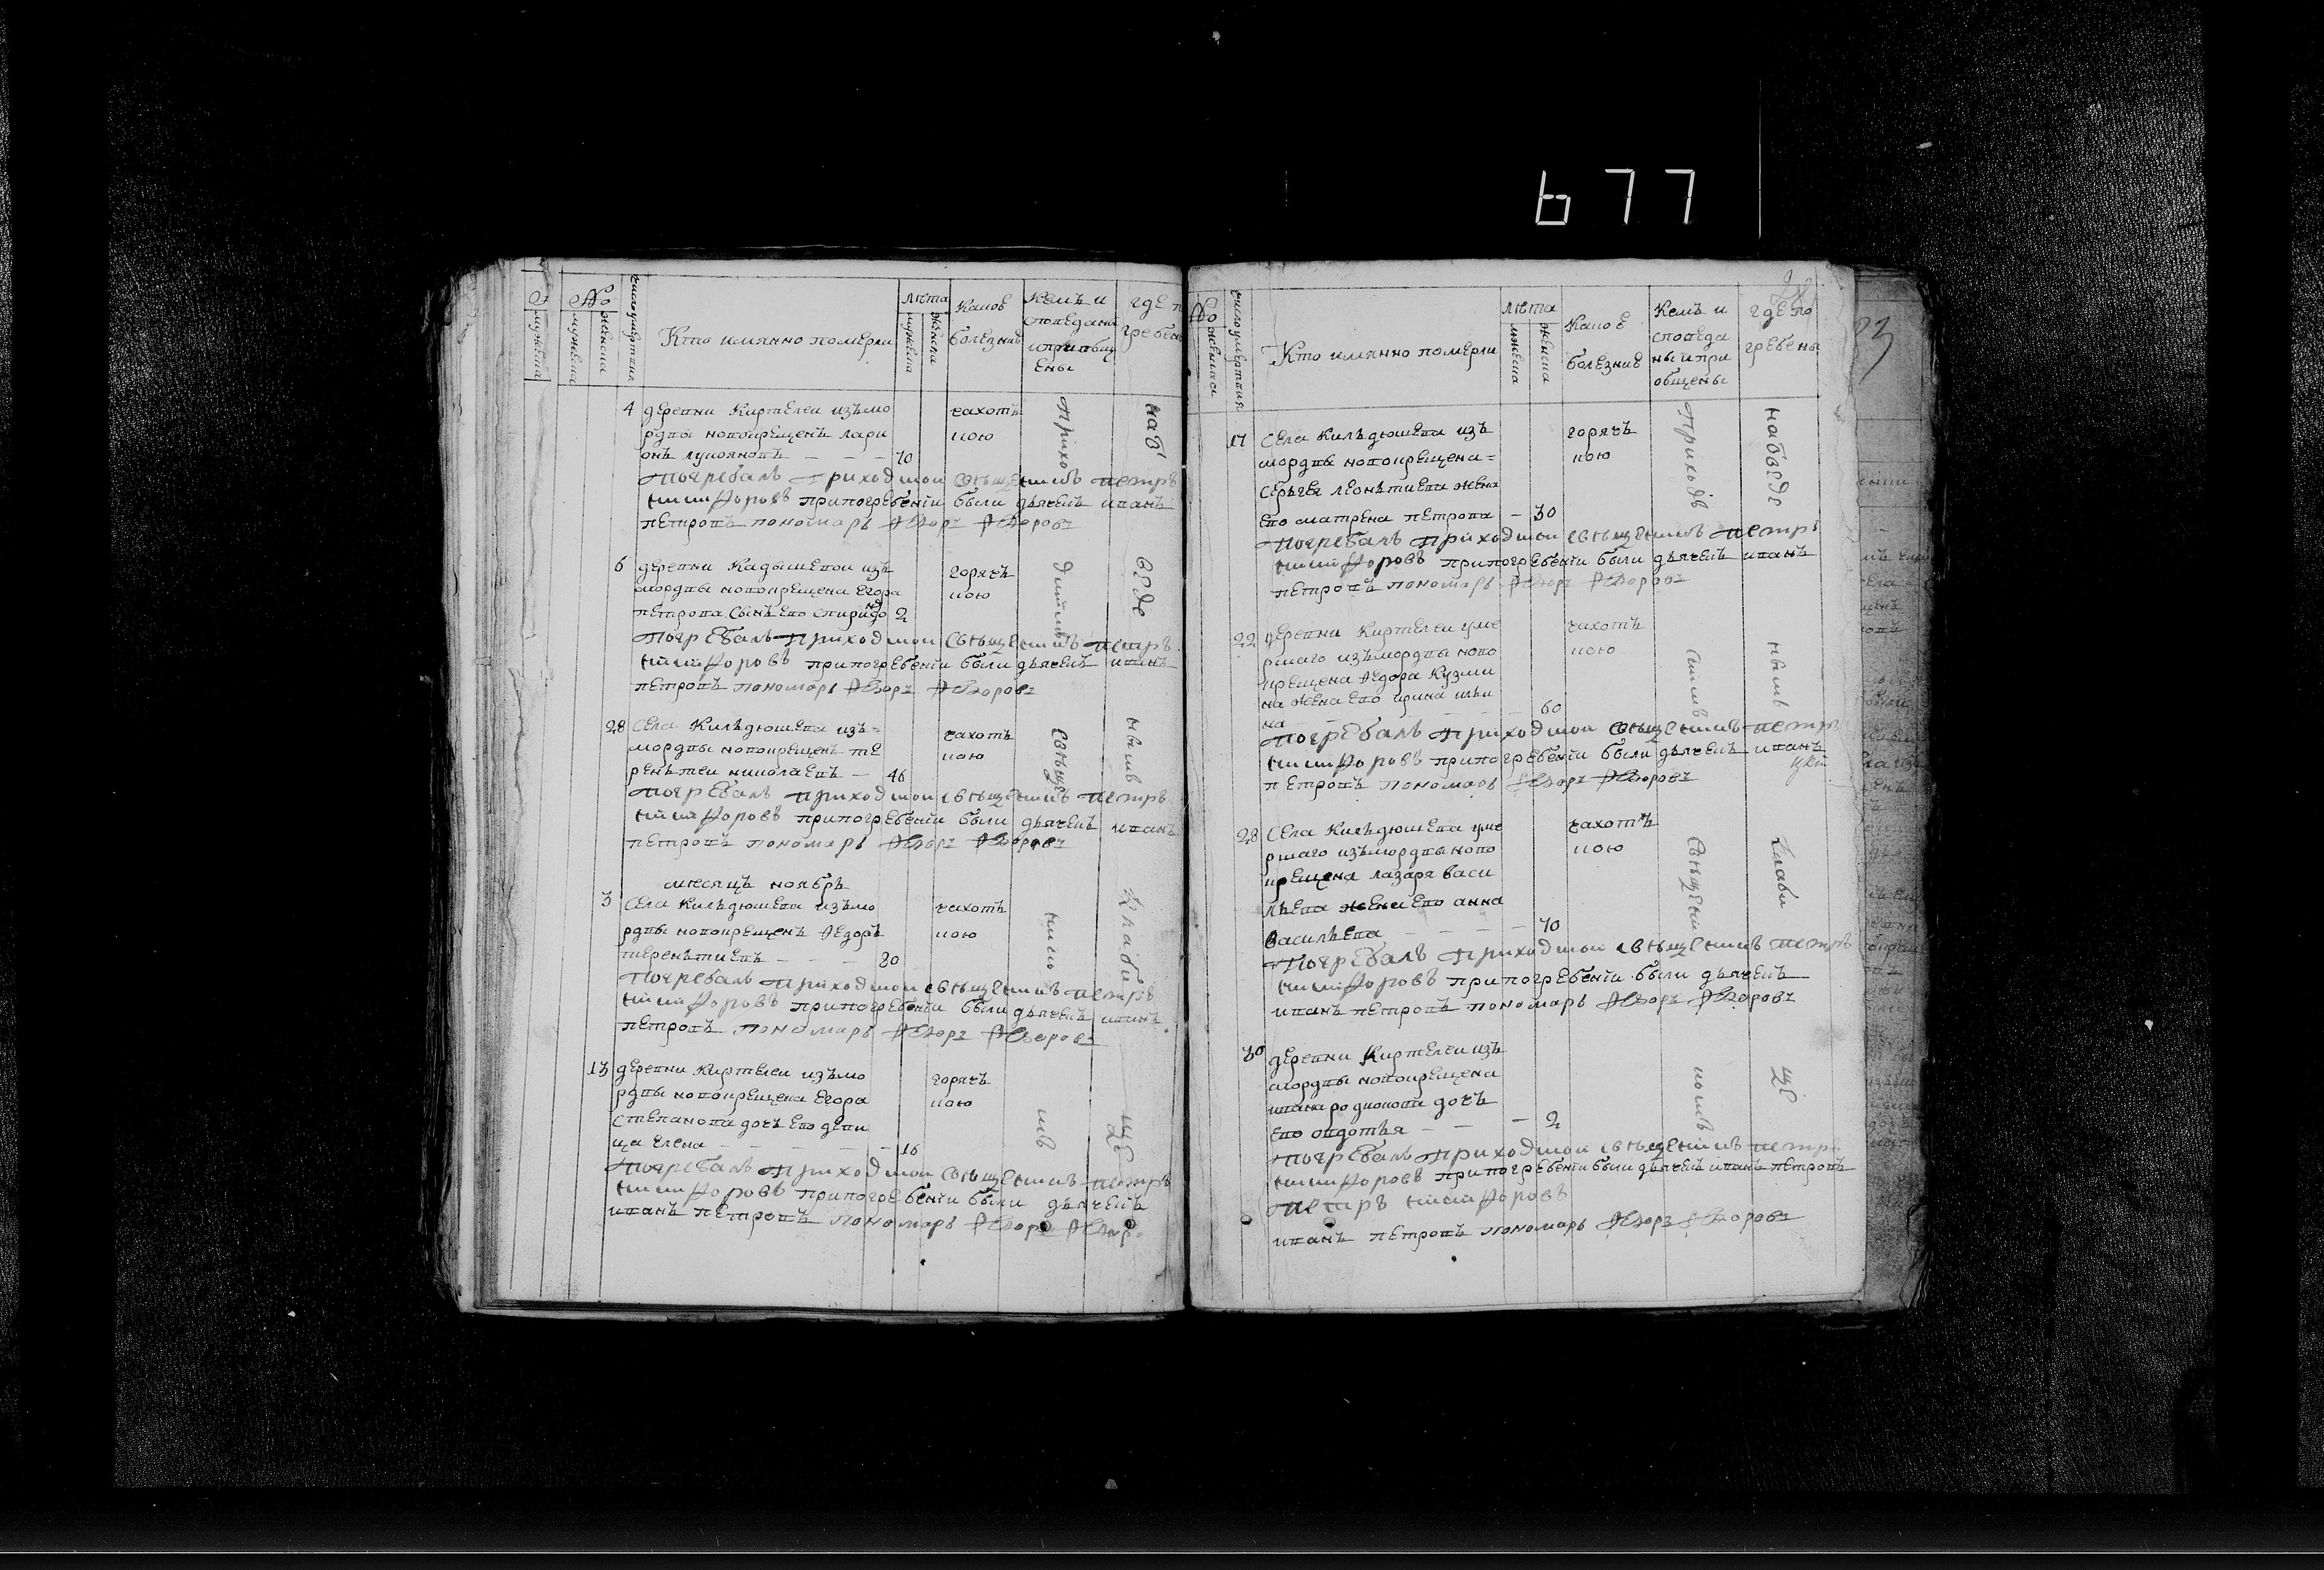 677
№
мужеска
женска
число умертвия
Кто имянно померли
лѣта
мужеска
женска
Какое
болезние
Кемъ и
споведани
и приобщ
ены
где п
гребен
4 деревни Киртелеи изъ мо
рдвы новокрещенъ лари
онъ лукояновъ — — — 70
чахотъ
кою
Погребалъ Приходскои священникъ петръ
никифоровъ при погребении были дьячекъ иванъ
петровъ пономарь Ѳедоръ Ѳедоровъ
6 деревни Кадышевои изъ
мордвы новокрещена Егора
петрова сынъ Ево спиридо 2
горячъ
кою
Погребалъ Приходскои священникъ петръ
никифоровъ при погребении были дьячекъ иванъ
петровъ пономарь Ѳедоръ Ѳедоровъ
28 Села Кильдюшева изъ
мордвы новокрещенъ те
рентеи николаевъ — 46
чахотъ
кою
Погребалъ приходскои священникъ петръ
никифоровъ при погребении были дьячекъ иванъ
петровъ пономарь Ѳедоръ Ѳедоровъ
месяцъ ноябрь
3 Села Кильдюшева изъ мо
рдвы новокрещенъ Ѳедоръ
терентиевъ — — — 80
чахотъ
кою
Погребалъ Приходскои священникъ петръ
никифоровъ при погребении были дьячекъ иванъ
петровъ пономарь Ѳедоръ Ѳедоровъ
13 деревни Киртелеи изъ мо
рдвы новокрещена Егора
степанова дочь Ево деви
ца Елена — — — — 16
горячъ
кою
Погребалъ Приходскои священникъ петръ
никифоровъ при погребении были дьячекъ
иванъ петровъ пономарь Ѳедоръ Ѳедор
Приход
скимъ
священ
нико
мъ
на б
веде
ннымъ
кладби
ще
№
женска
число умертвия
Кто имянно померли
лѣта
мжеска
женска
Какое
болезние
Кемъ и
споведа
ны и при
общены
где по
гребены
17 Села Кильдюшева изъ
мордвы новокрещена
Сергея леонтиева жена
Ево матрена петрова — 30
горячъ
кою
Погребалъ приходскои священникъ петръ
никифоровъ при погребении были дьячекъ иванъ
петровъ пономарь Ѳедоръ Ѳедоровъ
22 деревни Киртелеи уме
ршаго изъ мордвы ново
крещена Ѳедора Кузми
на жена Ево ирина ильи
на — — — — 60
чахотъ
кою
Погребалъ приходскои священникъ петръ
никифоровъ при погребении были дьячекъ иванъ
петровъ пономарь Ѳедоръ Ѳедоровъ
28 Села Кильдюшева уме
ршаго изъ мордвы ново
крещена лазаря васи
льева жена Ево анна
васильева — — — — 70
чахотъ
кою
Погребалъ Приходскои священникъ петръ
никифоровъ при погребении были дьячекъ
иванъ петровъ пономарь Ѳедоръ Ѳедоровъ
30 деревни Киртелеи изъ
мордвы новокрещена
ивана родионова дочь
Ево овдотья — — — 2
Погребалъ Приходскои священникъ петръ
никифоровъ при погребении были дьячекъ иванъ петровъ
петръ никифоровъ
иванъ петровъ пономарь Ѳедоръ Ѳедоровъ